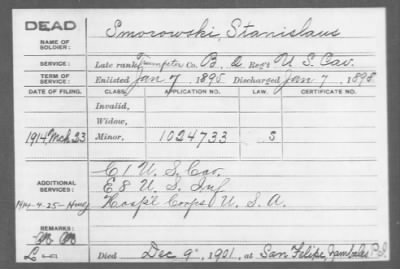 DEAD
NAME OF SOLDIER:
Smorowski, Stanislaus
SERVICE:
Late rank, Trumpeter Co. B, 6 Reg't U. S. Cav.
TERM OF SERVICE:
Enlisted Jan 7, 1895 Discharged Jan 7, 1898
DATE OF FILING. CLASS. APPLICATION NO. LAW. CERTIFICATE NO.
Invalid,
Widow,
1914, Mch 23 Minor, 1024733 S
ADDITIONAL SERVICES:
C 1 U. S. Cav.
E 8 U. S. Inf
1914-4-25- Hosp'l Corps U. S. A.
REMARKS:
Died Dec 9", 1901, at San Felipe, Zambales P. I.